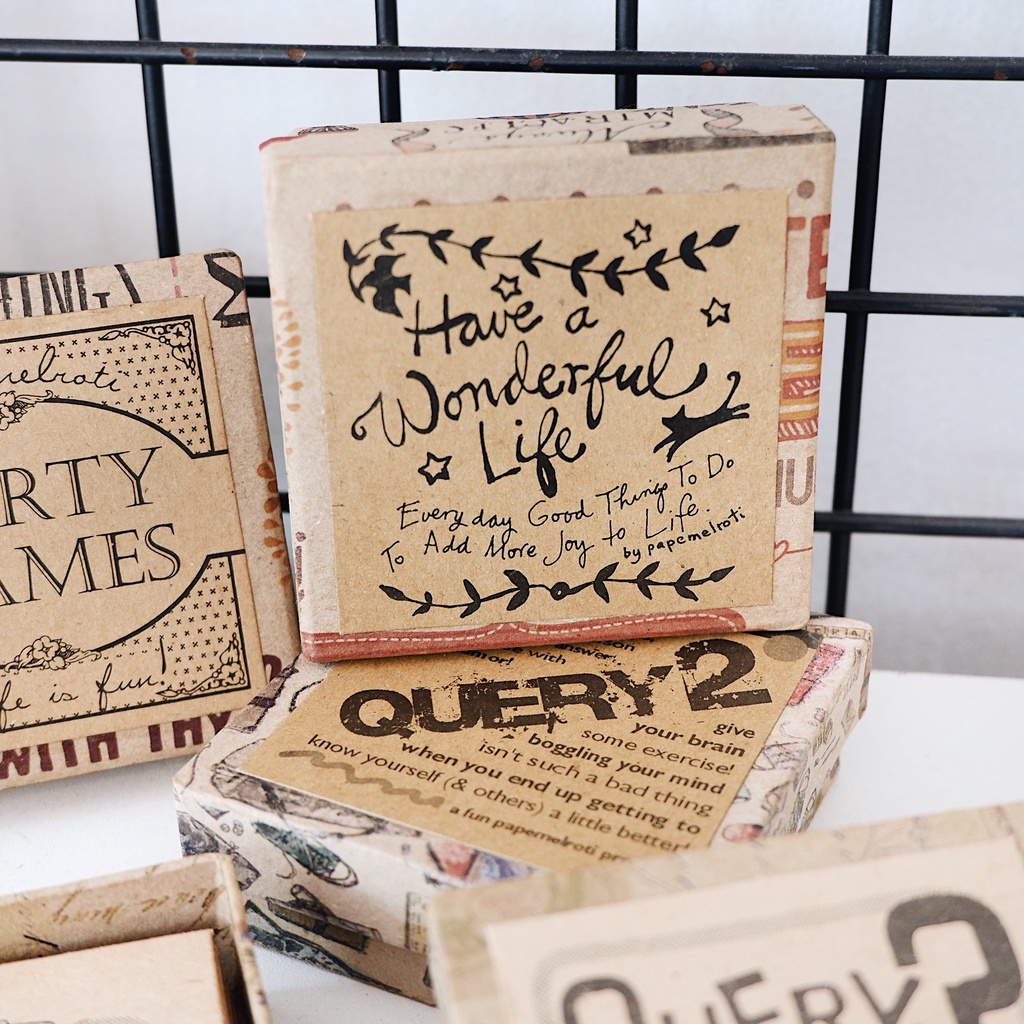 Always
MIRACLES
Have a
Wonderful
Life
Everyday Good Things To Do
To Add More Joy to Life.
by papemelroti
HINGS
melroti
RTY
AMES
fe is fun!
WITH THY
answer.
QUERY2
give
your brain
some exercise!
boggling your mind
isn't such a bad thing
when you end up getting to
know yourself (& others) a little better!
a fun papemelroti pr
QUERY?